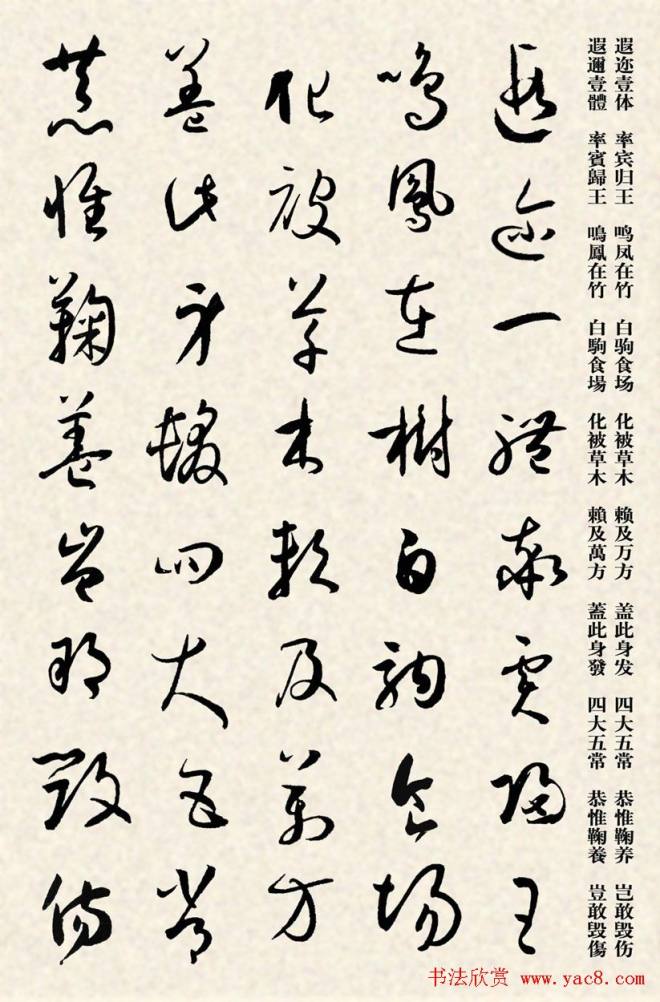 遐迩壹体 率宾归王 鸣凤在竹 白驹食场 化被草木 赖及万方 盖此身发 四大五常 恭惟鞠养 岂敢毁伤
遐邇壹體 率賓歸王 鳴鳳在竹 白駒食場 化被草木 賴及萬方 蓋此身發 四大五常 恭惟鞠養 豈敢毀傷
遐迩一體率賓歸王
鳴鳳在樹白駒食場
化被草木賴及萬方
蓋此身髮四大五常
恭惟鞠養豈敢毀傷
书法欣赏 www.yac8.com